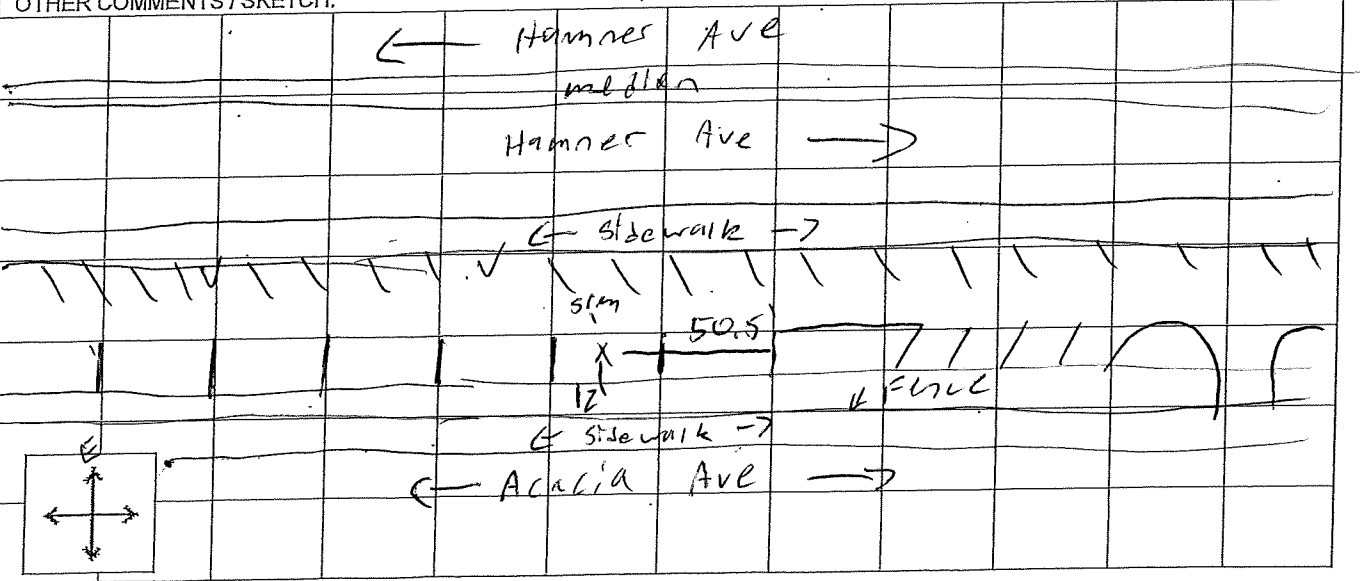 OTHER COMMENTS / SKETCH:
← Hamner Ave
median
Hamner Ave →
← sidewalk →
50.5
X
12
Fence
← sidewalk →
← Acacia Ave →
E